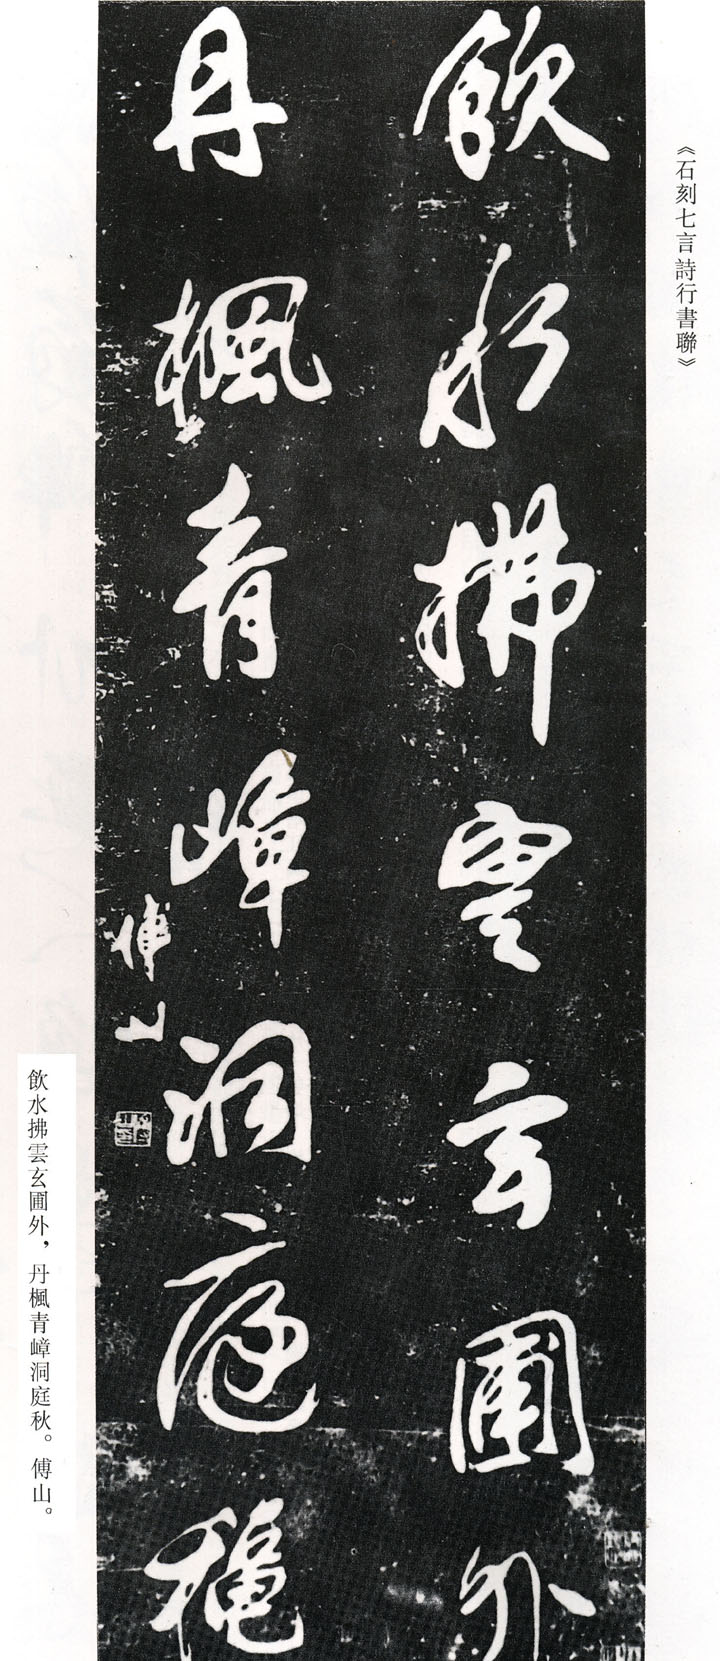 《石刻七言詩行書聯》
飲水拂雲玄圃外
丹楓青嶂洞庭穐
傅山
飲水拂雲玄圃外，丹楓青嶂洞庭秋。傅山。